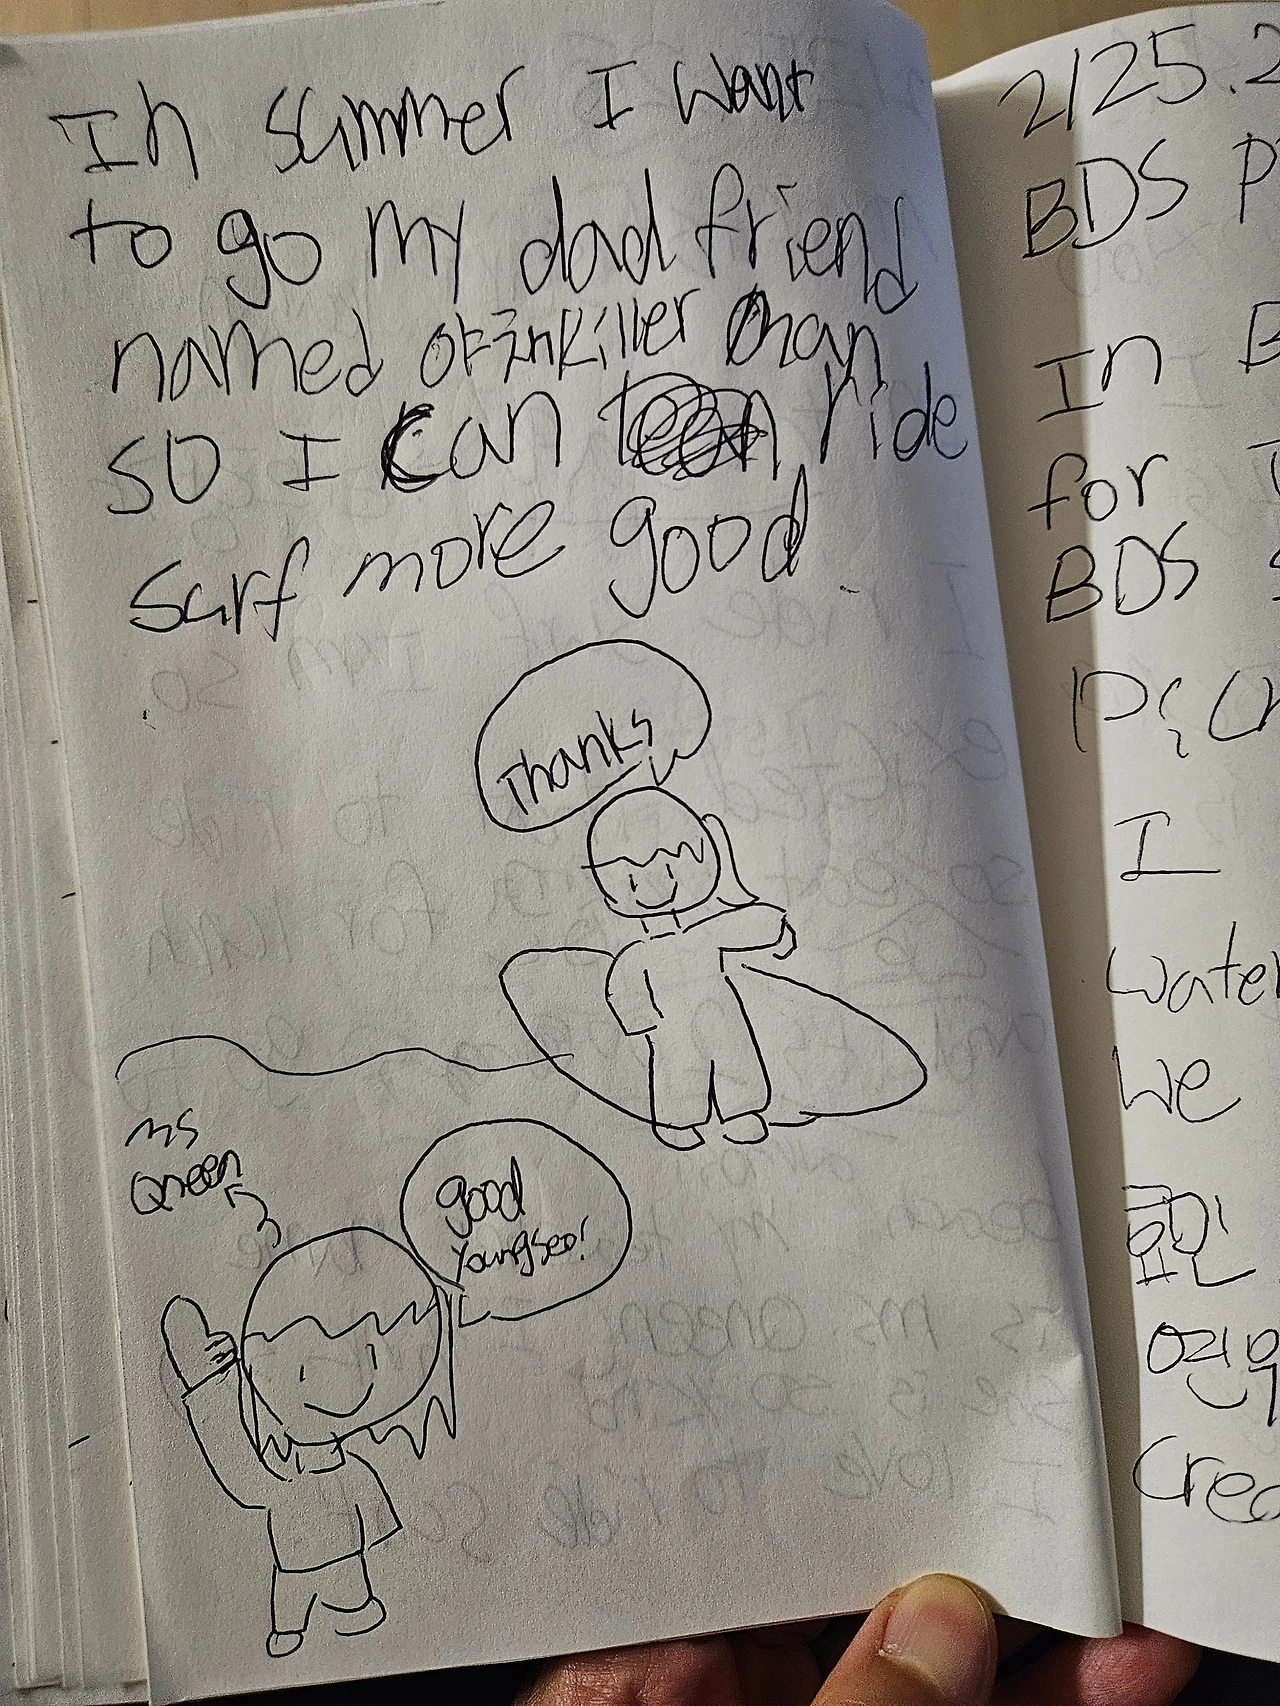 In summer I want
to go my dad friend
named killer than
so I can ride
surf more good.
Thanks
ms
Qneen
good
youngseo!
2/25.2
BDS P
In B
for
BDS S
I
water
we
연우
Crea